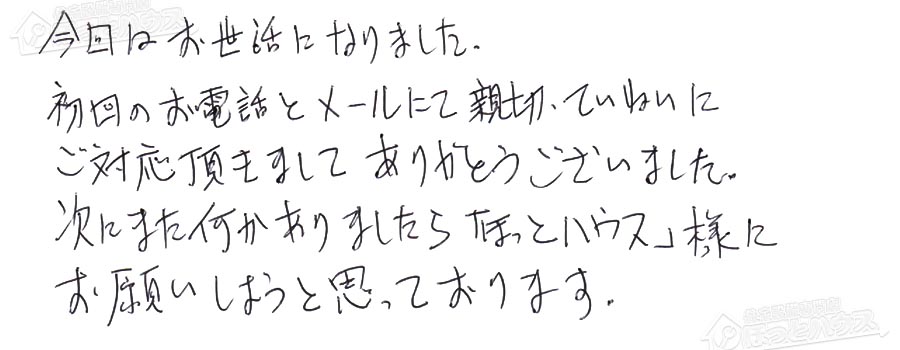 今回はお世話になりました。
初回のお電話とメールにて親切、ていねいに
ご対応頂きまして ありがとうございました。
次にまた何かありましたら「ほっとハウス」様に
お願いしようと思っております。
ほっとハウス